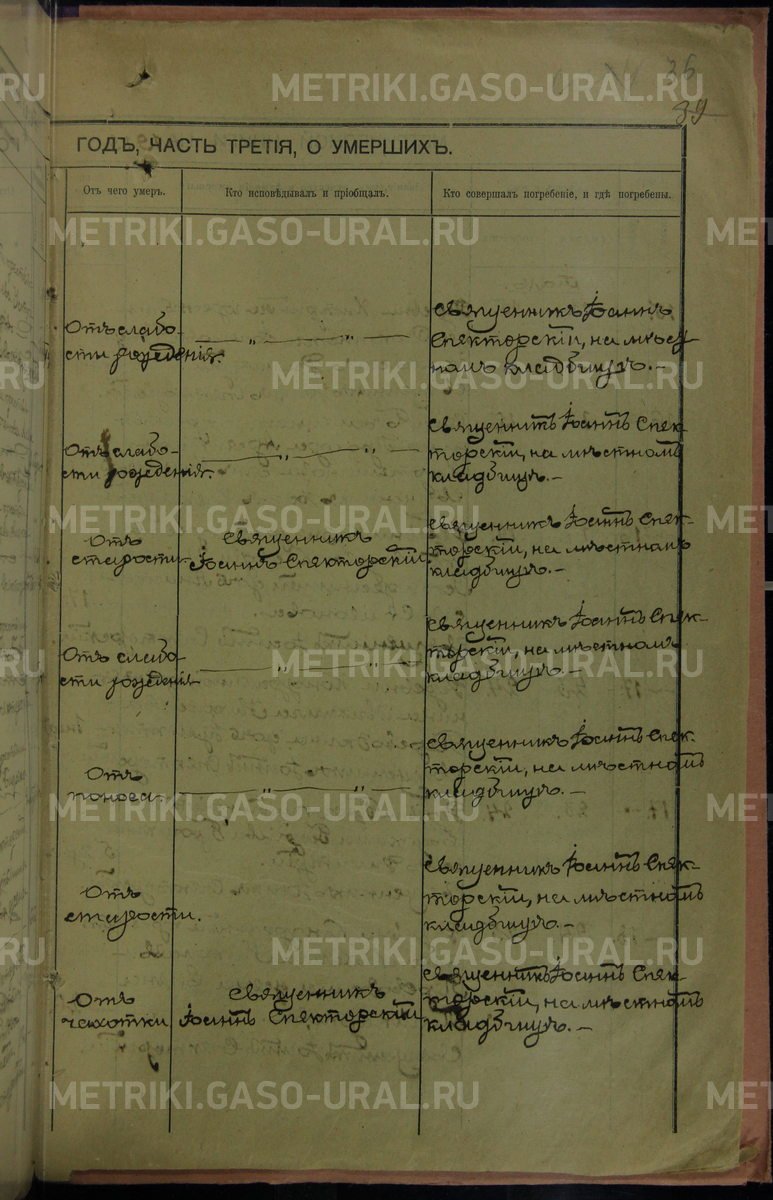 36
39
ГОДЪ, ЧАСТЬ ТРЕТІЯ, О УМЕРШИХЪ.
Отъ чего умеръ.
Кто исповѣдывалъ и пріобщалъ.
Кто совершалъ погребеніе, и гдѣ погребены.
Отъ слабо-
сти рожденія.
— „ — „ —
Священникъ Іоаннъ
Спекторскій, на мѣст-
номъ кладбищѣ. —
Отъ слабо-
сти рожденія.
— „ — „ —
Священникъ Іоаннъ Спек-
торскій, на мѣстномъ
кладбищѣ. —
Отъ
старости.
Священникъ
Іоаннъ Спекторскій.
Священникъ Іоаннъ Спек-
торскій, на мѣстномъ
кладбищѣ. —
Отъ слабо-
сти рожденія
— „ — „ —
Священникъ Іоаннъ Спек-
торскій, на мѣстномъ
кладбищѣ. —
Отъ
поноса.
— „ — „ —
Священникъ Іоаннъ Спек-
торскій, на мѣстномъ
кладбищѣ. —
Отъ
старости.
Священникъ Іоаннъ Спек-
торскій, на мѣстномъ
кладбищѣ. —
Отъ
чахотки
Священникъ
Іоаннъ Спекторскій
Священникъ Іоаннъ Спек-
торскій, на мѣстномъ
кладбищѣ. —
METRIKI.GASO-URAL.RU